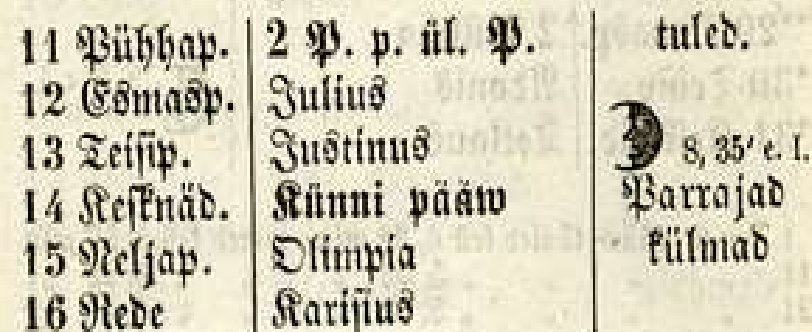 11 Pühhap. 2 P. p. ül. P. tuled.
12 Esmasp. Julius
13 Teisip. Justinus 8, 35′ e. l.
14 Keſknäd. Künni pääw Parrajad
15 Neljap. Olimpia külmad
16 Rede Kariſius